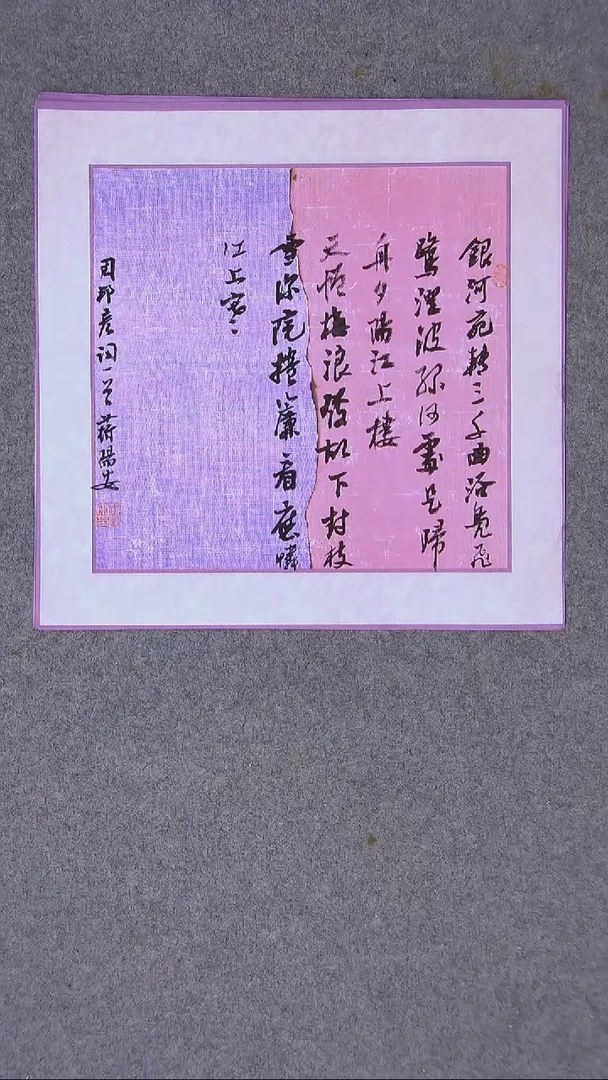 銀河宛轉三千曲浴鳧飛
鷺澄波綠何處是歸
舟夕陽江上樓
天憎梅浪發故下封枝
雪深院捲簾看應憐
江上寒
周邦彥詞一首 蔣陽